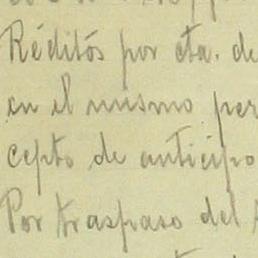 Réditos por cta. de
en el mismo per
cepto de anticipo
Por traspaso del